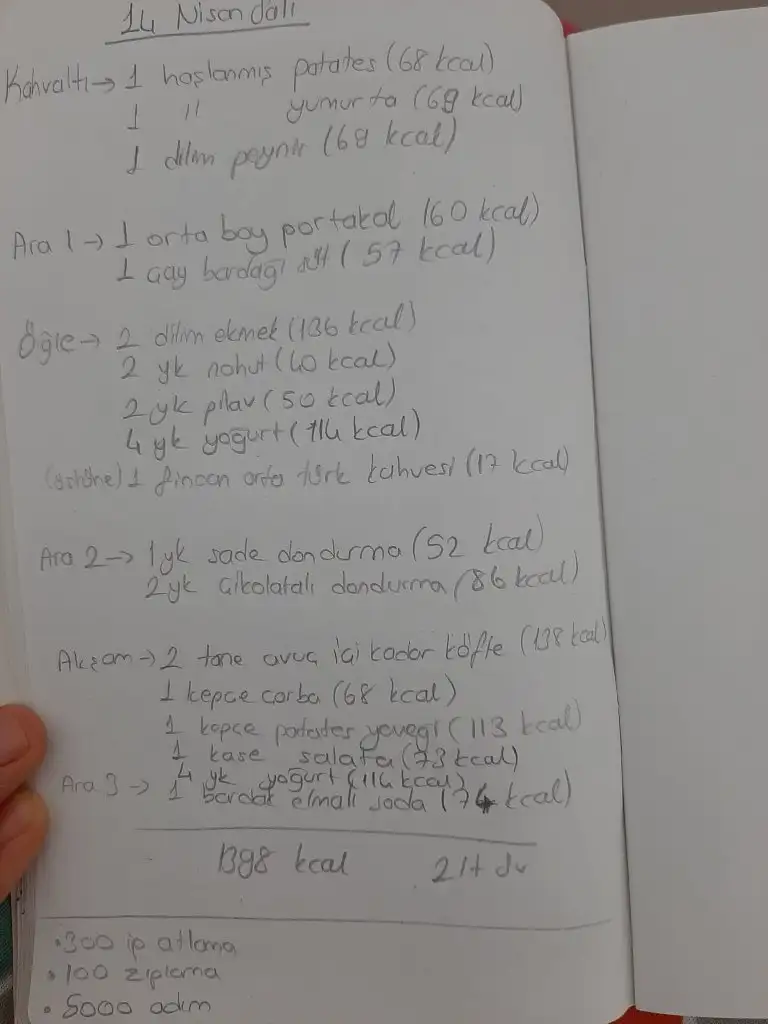 14 Nisan Salı
Kahvaltı → 1 haşlanmış patates (68 kcal)
1 " yumurta (69 kcal)
1 dilim peynir (69 kcal)
Ara 1 → 1 orta boy portakal (60 kcal)
1 çay bardağı süt (57 kcal)
Öğle → 2 dilim ekmek (136 kcal)
2 yk nohut (40 kcal)
2 yk pilav (50 kcal)
4 yk yoğurt (114 kcal)
1 fincan orta türk kahvesi (17 kcal)
Ara 2 → 1 yk sade dondurma (52 kcal)
2 yk çikolatalı dondurma (86 kcal)
Akşam → 2 tane avuç içi kadar köfte (138 kcal)
1 kepçe çorba (68 kcal)
1 kepçe patates yemeği (113 kcal)
1 kase salata (73 kcal)
4 yk yoğurt (114 kcal)
Ara 3 → 1 bardak elmalı soda (74 kcal)
1398 kcal 2 lt su
• 300 ip atlama
• 100 zıplama
• 5000 adım